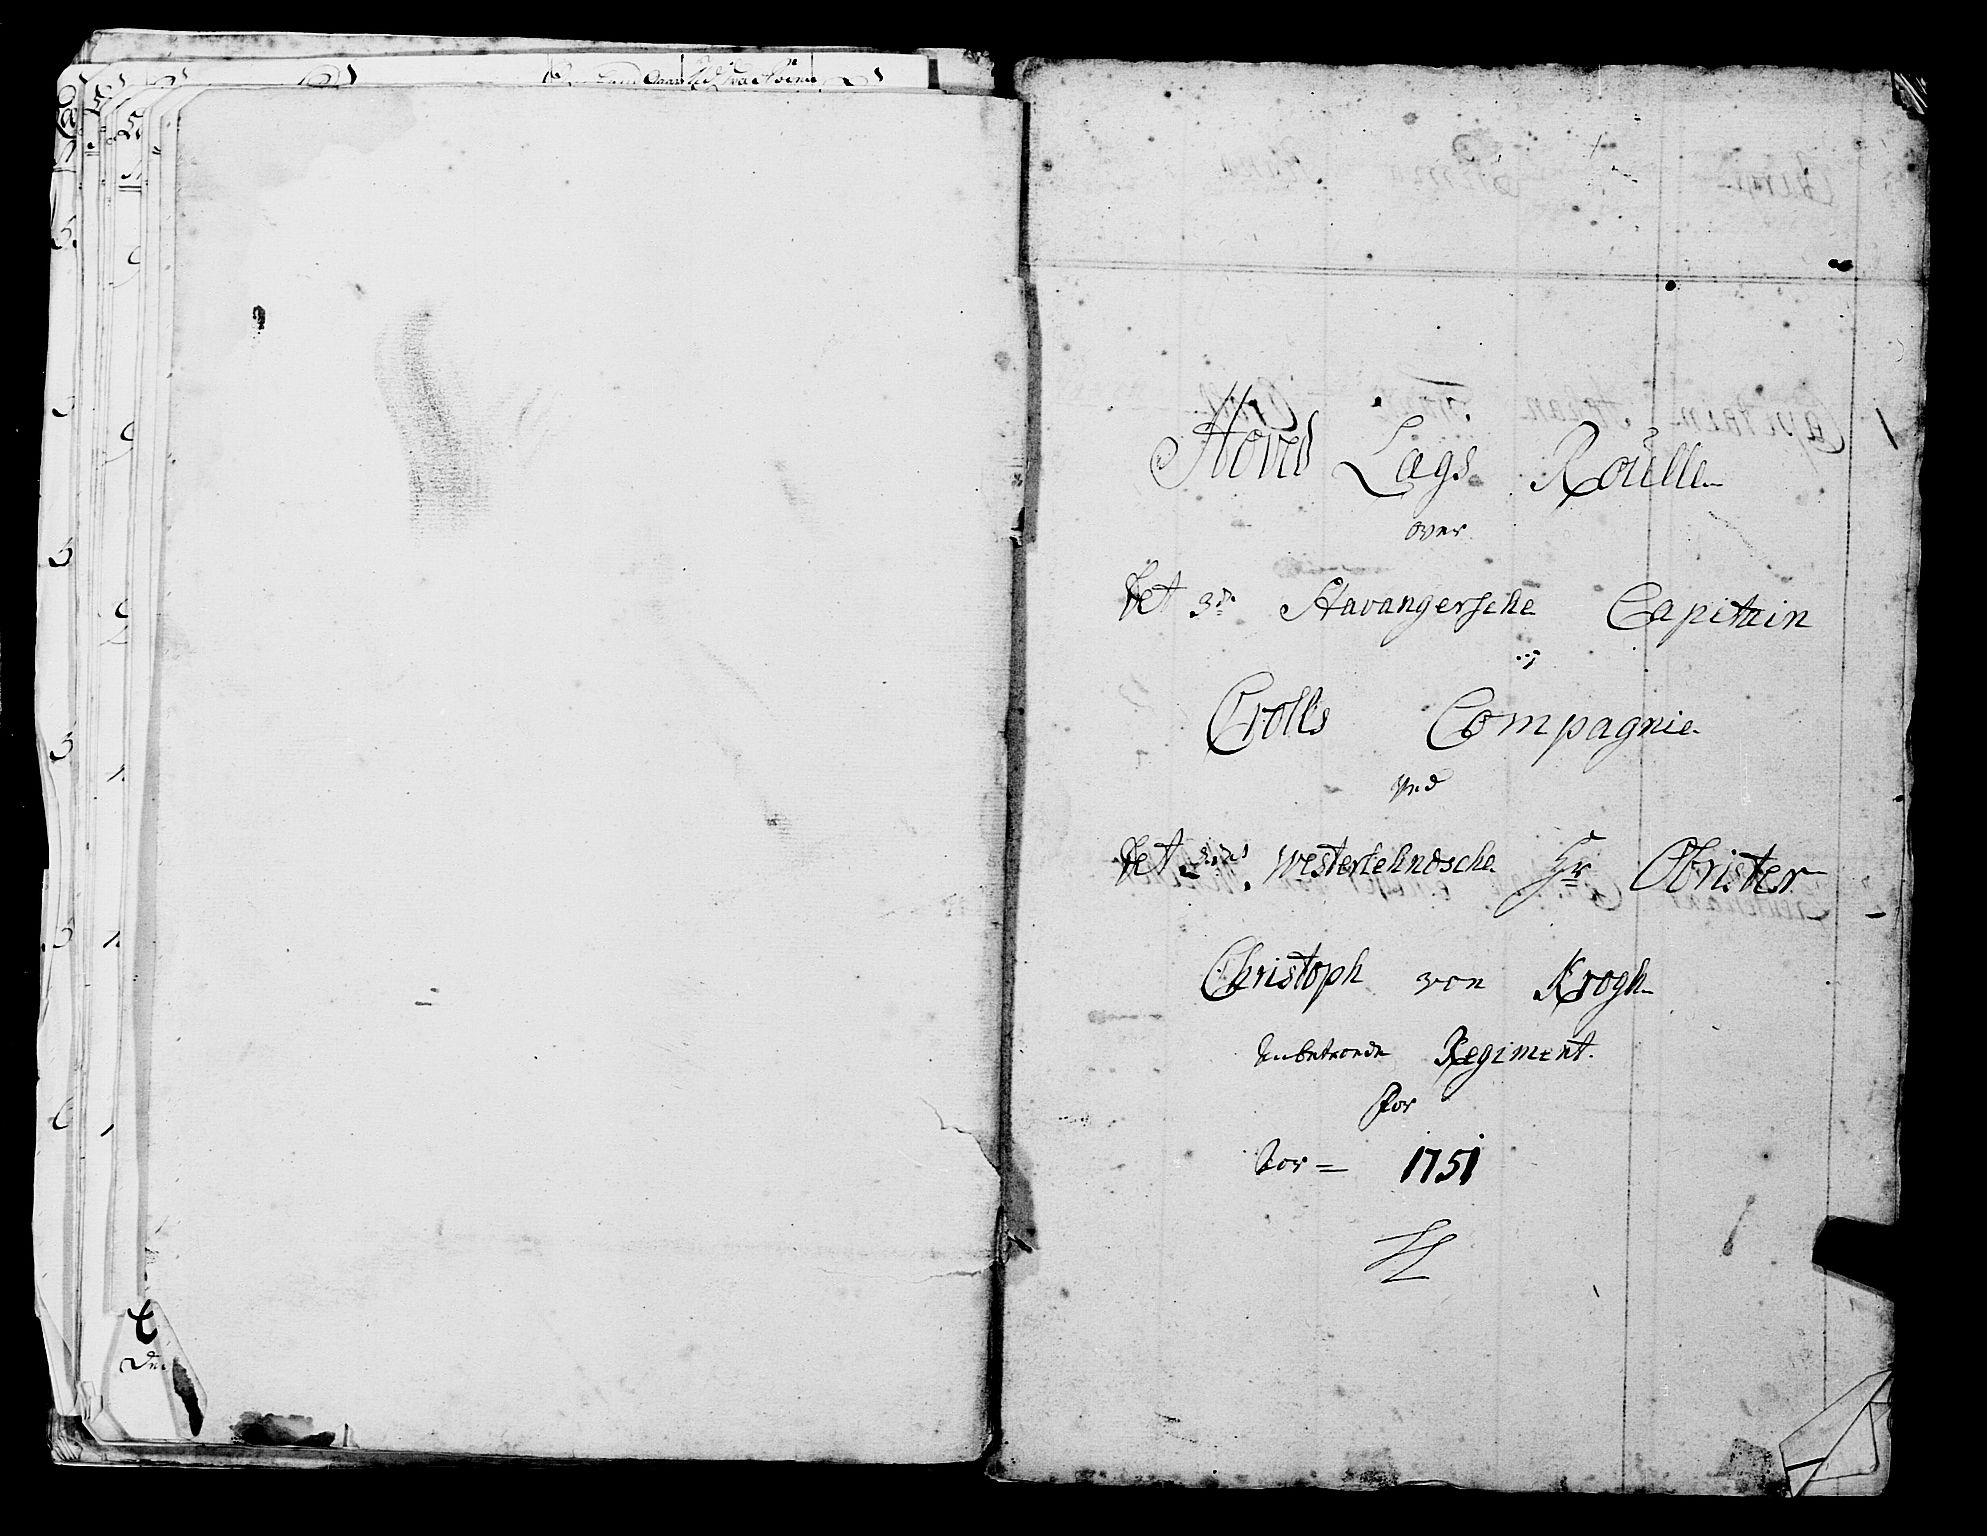 Hoved Lægs Roülle
over
Det 3de Stavangersche Capitain
Crolls Compagnie
Ved
Det 2det Westerlehndsche Hr Obrister
Christoph von Krogh
anbetroede Regiment.
for
For = 1751